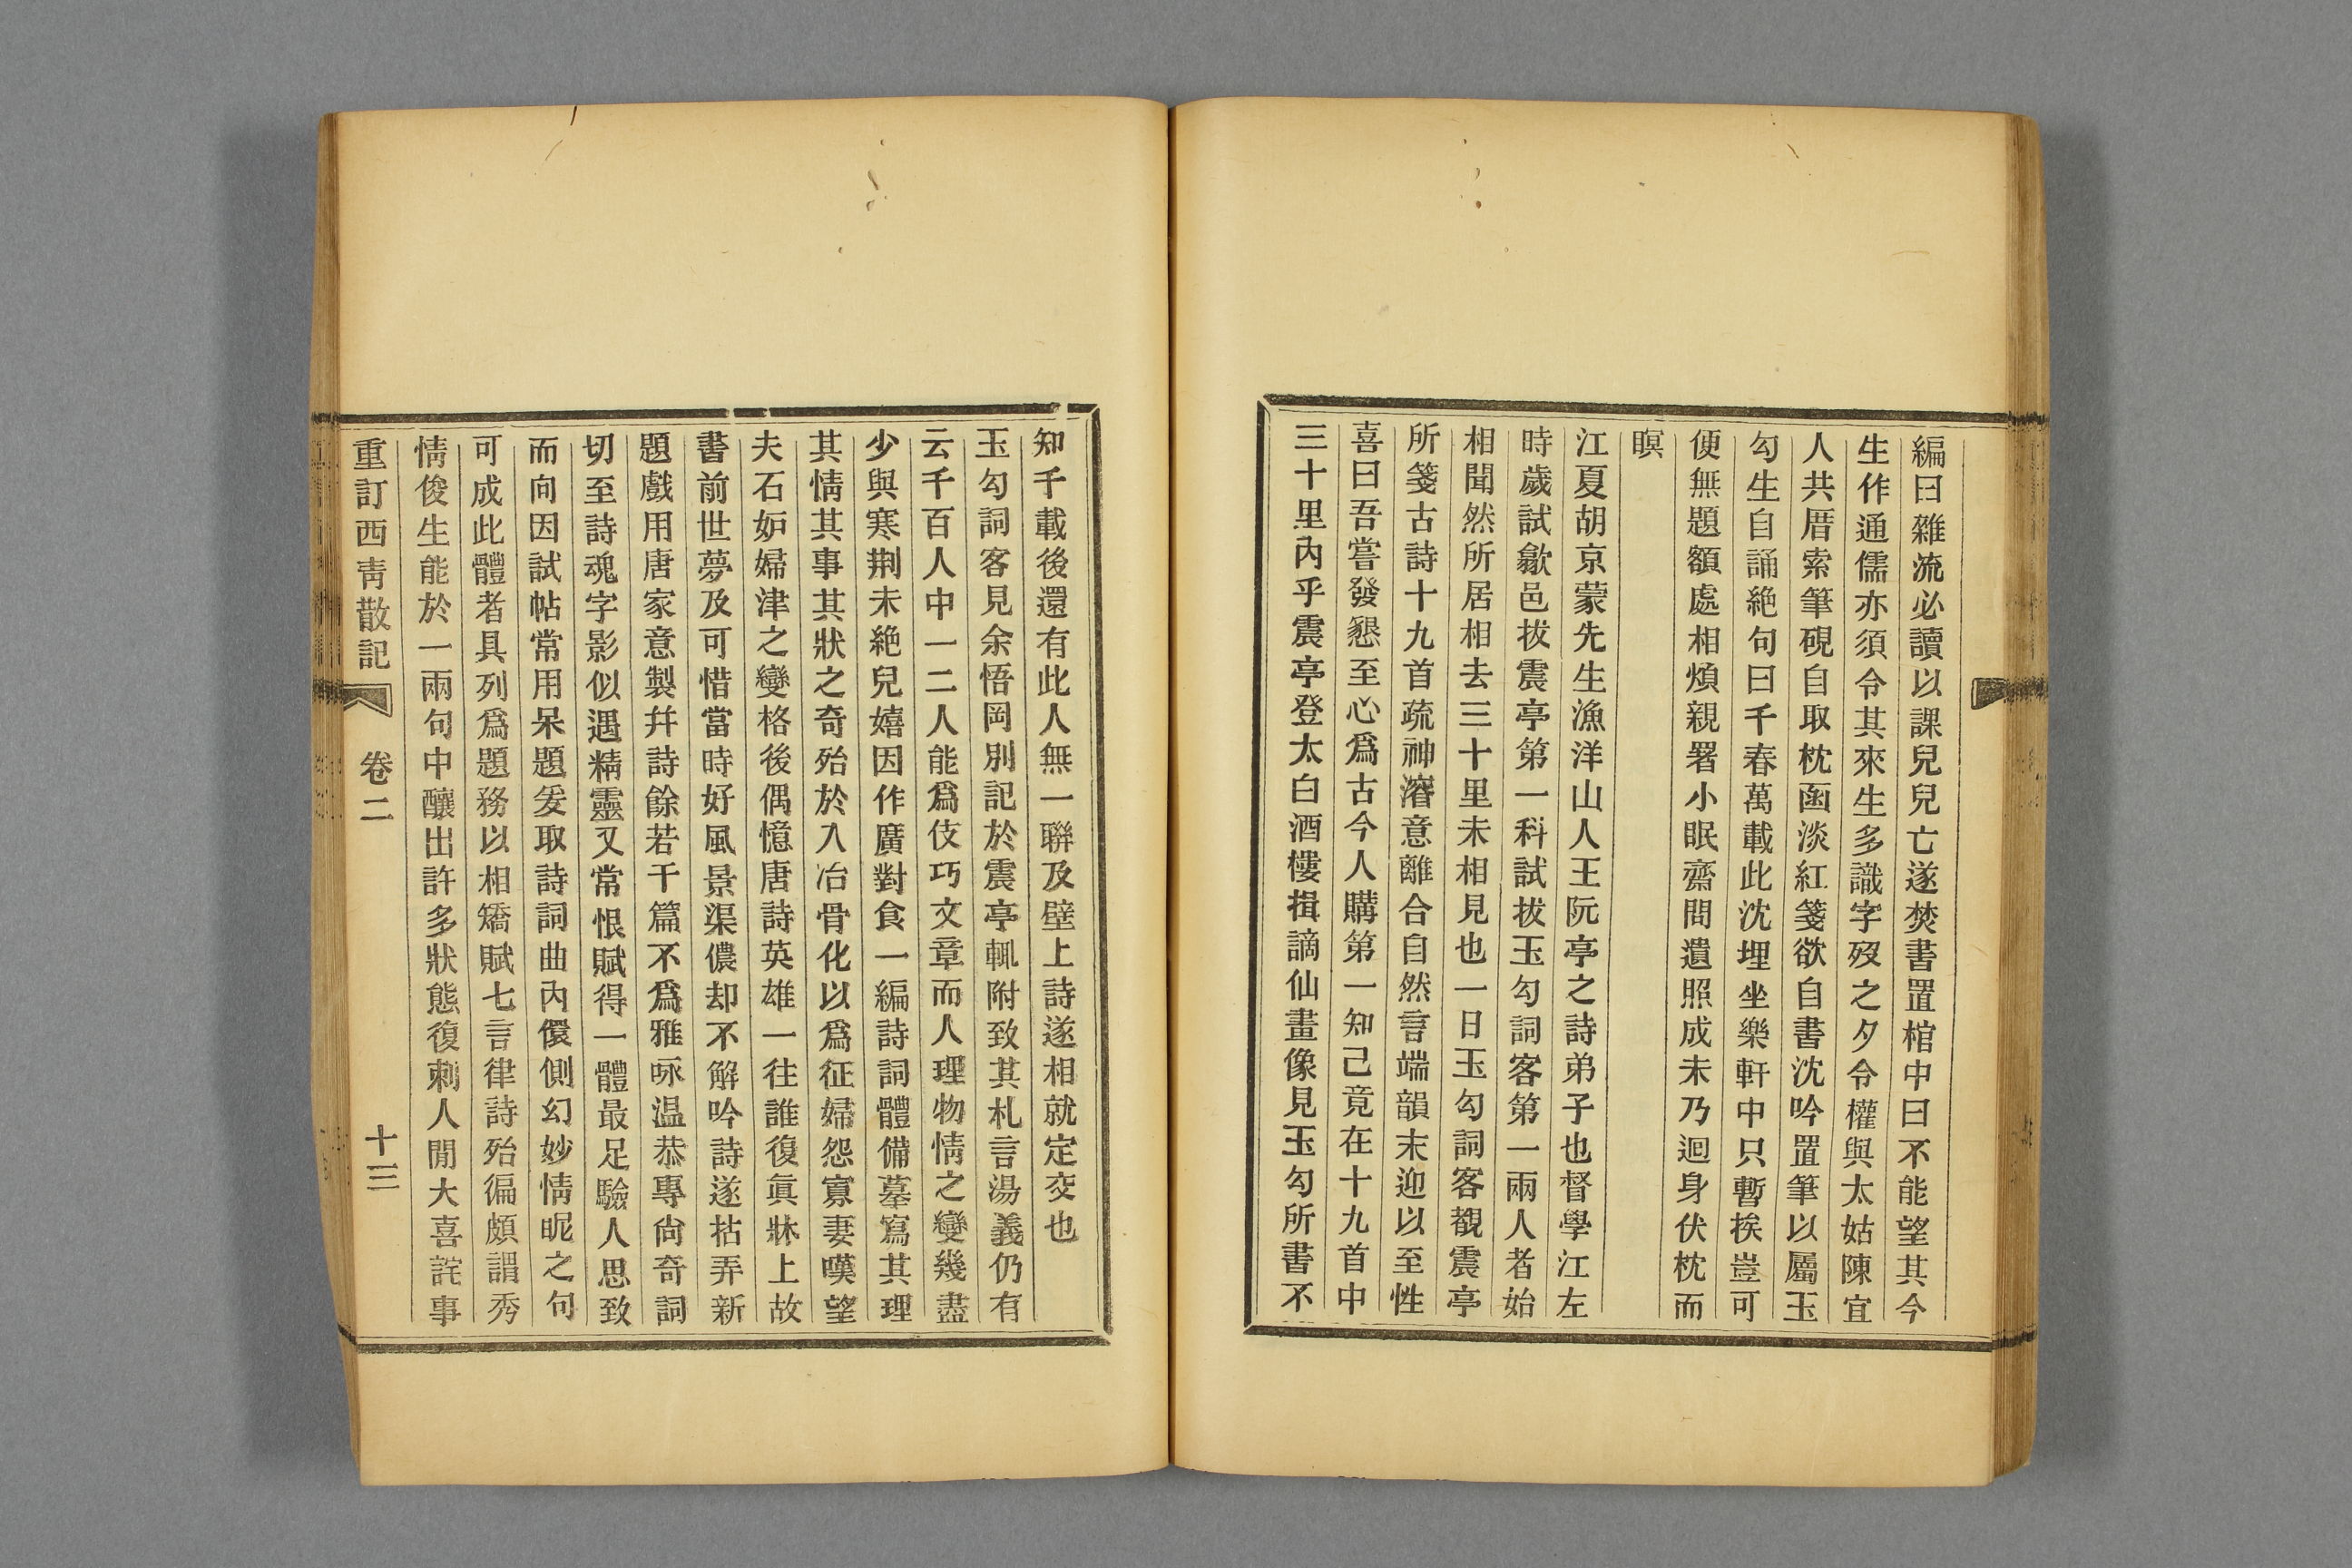 編曰雜流必讀以課兒兒亡遂焚書置棺中曰不能望其今
生作通儒亦須令其來生多識字歿之夕令權與太姑陳宜
人共厝索筆硯自取枕函淡紅箋欲自書沈吟置筆以屬玉
勾生自誦絶句曰千春萬載此沈埋坐樂軒中只暫挨豈可
便無題額處相煩親署小眠齋問遺照成未乃迴身伏枕而
瞑
江夏胡京蒙先生漁洋山人王阮亭之詩弟子也督學江左
時歲試歙邑拔震亭第一科試拔玉勾詞客第一兩人者始
相聞然所居相去三十里未相見也一日玉勾詞客覩震亭
所箋古詩十九首疏神濬意離合自然言端韻末迎以至性
喜曰吾嘗發懇至心爲古今人購第一知己竟在十九首中
三十里內乎震亭登太白酒樓揖謫仙畫像見玉勾所書不
知千載後還有此人無一聯及壁上詩遂相就定交也
玉勾詞客見余悟岡別記於震亭輒附致其札言湯義仍有
云千百人中一二人能爲伎巧文章而人理物情之變幾盡
少與寒荆未絶兒嬉因作廣對食一編詩詞體備摹寫其理
其情其事其狀之奇殆於入冶骨化以爲征婦怨寡妻嘆望
夫石妒婦津之變格後偶憶唐詩英雄一往誰復眞牀上故
書前世夢及可惜當時好風景渠儂却不解吟詩遂拈弄新
題戲用唐家意製幷詩餘若干篇不爲雅咏温恭專尙奇詞
切至詩魂字影似遇精靈又常恨賦得一體最足驗人思致
而向因試帖常用呆題爰取詩詞曲內儇側幻妙情昵之句
可成此體者具列爲題務以相矯賦七言律詩殆徧頗謂秀
情俊生能於一兩句中釀出許多狀態復刺人閒大喜詫事
重訂西靑散記
卷二
十三